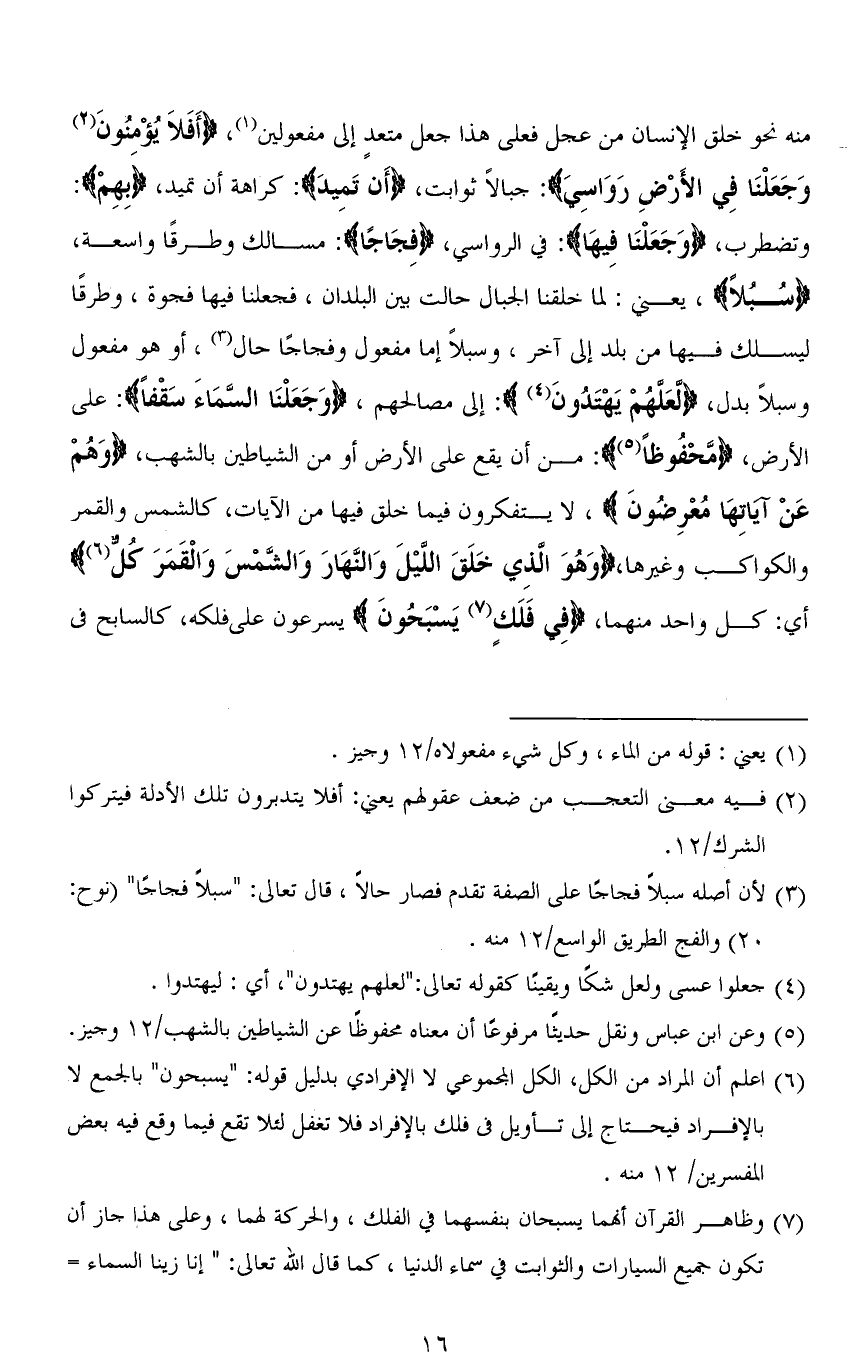 منه نحو خلق الإنسان من عجل فعلى هذا جعل متعدٍ إلى مفعولين(١)، ﴿أَفَلاَ يُؤْمِنُونَ(٢)
وَجَعَلْنَا فِي الأَرْضِ رَوَاسِيَ﴾: جبالاً ثوابت، ﴿أَن تَمِيدَ﴾: كراهة أن تميد، ﴿بِهِمْ﴾:
وتضطرب، ﴿وَجَعَلْنَا فِيهَا﴾: في الرواسي، ﴿فِجَاجًا﴾: مسالك وطرقًا واسعة،
﴿سُبُلاً﴾ ، يعني : لما خلقنا الجبال حالت بين البلدان ، فجعلنا فيها فجوة ، وطرقًا
ليسلك فيها من بلد إلى آخر ، وسبلاً إما مفعول وفجاجًا حال(٣) ، أو هو مفعول
وسبلاً بدل، ﴿لَّعَلَّهُمْ يَهْتَدُونَ(٤) ﴾: إلى مصالحهم ، ﴿وَجَعَلْنَا السَّمَاءَ سَقْفاً﴾: على
الأرض، ﴿مَّحْفُوظاً(٥)﴾: من أن يقع على الأرض أو من الشياطين بالشهب، ﴿وَهُمْ
عَنْ آيَاتِهَا مُعْرِضُونَ ﴾ ، لا يتفكرون فيما خلق فيها من الآيات، كالشمس والقمر
والكواكب وغيرها،﴿وَهُوَ الَّذِي خَلَقَ اللَّيْلَ وَالنَّهَارَ وَالشَّمْسَ وَالْقَمَرَ كُلٌّ(٦)﴾
أي: كل واحد منهما، ﴿فِي فَلَكٍ(٧) يَسْبَحُونَ ﴾ يسرعون على‌فلكه، كالسابح فى
(١) يعني : قوله من الماء ، وكل شيء مفعولاه/١٢ وجيز .
(٢) فيه معنى التعجب من ضعف عقولهم يعني: أفلا يتدبرون تلك الأدلة فيتركوا
الشرك/١٢.
(٣) لأن أصله سبلاً فجاجًا على الصفة تقدم فصار حالاً ، قال تعالى: "سبلاً فجاجًا" (نوح:
٢٠) والفج الطريق الواسع/١٢ منه .
(٤) جعلوا عسى ولعل شكًا ويقينًا كقوله تعالى:"لعلهم يهتدون"، أي : ليهتدوا .
(٥) وعن ابن عباس ونقل حديثًا مرفوعًا أن معناه محفوظًا عن الشياطين بالشهب/١٢ وجيز.
(٦) اعلم أن المراد من الكل، الكل المجموعي لا الإفرادي بدليل قوله: "يسبحون" بالجمع لا
بالإفراد فيحتاج إلى تأويل فى فلك بالإفراد فلا تغفل لئلا تقع فيما وقع فيه بعض
المفسرين/ ١٢ منه .
(٧) وظاهر القرآن أنهما يسبحان بنفسهما في الفلك ، والحركة لهما ، وعلى هذا جاز أن
تكون جميع السيارات والثوابت في سماء الدنيا ، كما قال الله تعالى: " إنا زينا السماء =
١٦